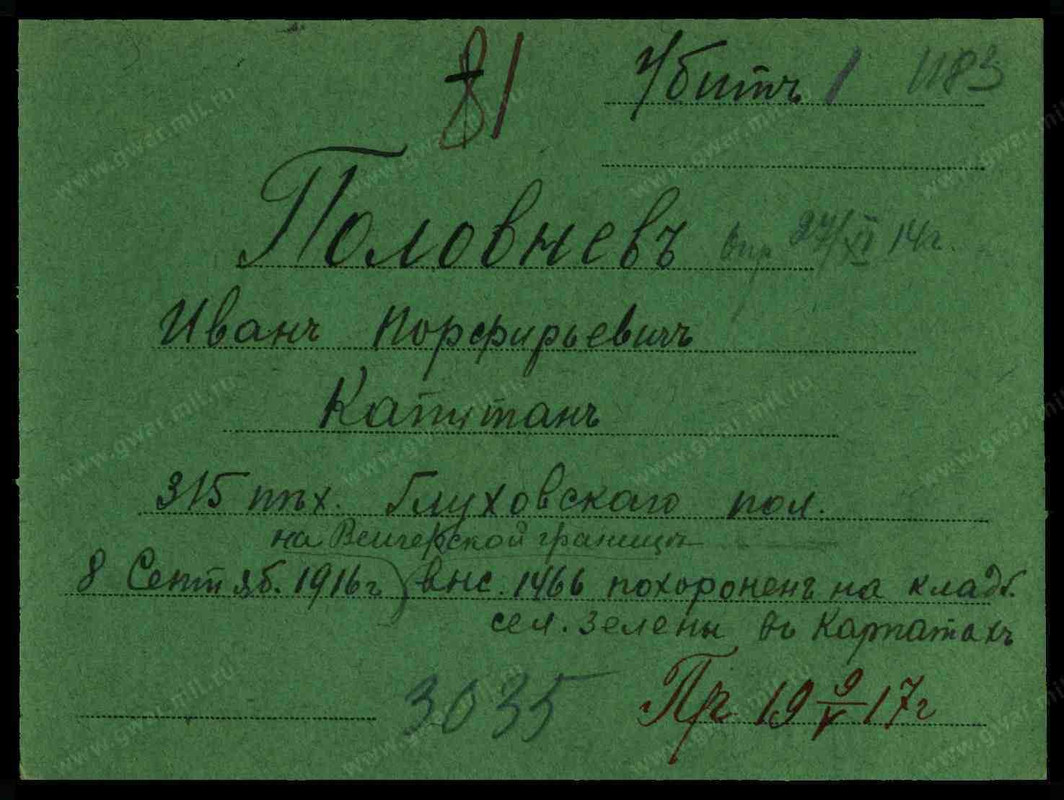 81 Убитъ 1 1183
Половневъ 27/XI 14г.
Иванъ Порфирьевичъ
Капитанъ
315 пѣх. Глуховскаго пол.
на Венгерской границѣ
8 Сентяб. 1916г) внс. 1466 похороненъ на кладб.
сел. Зелены въ Карпатахъ
3035 Пр 19 9/V 17г
www.gwar.mil.ru